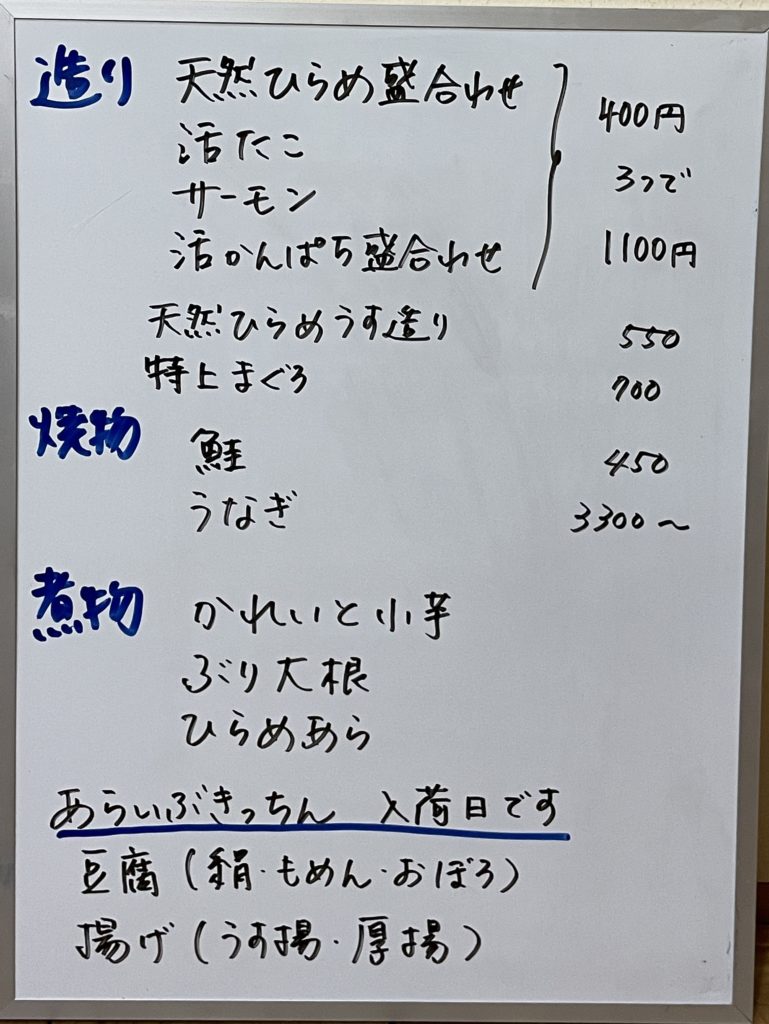 造り 天然ひらめ盛合わせ 400円
活たこ
サーモン 3つで
活かんぱち盛合わせ 1100円
天然ひらめうす造り 550
特上まぐろ 700
焼物 鮭 450
うなぎ 3300〜
煮物 かれいと小芋
ぶり大根
ひらめあら
あらいぶきっちん 入荷日です
豆腐(絹・もめん・おぼろ)
揚げ(うす揚・厚揚)